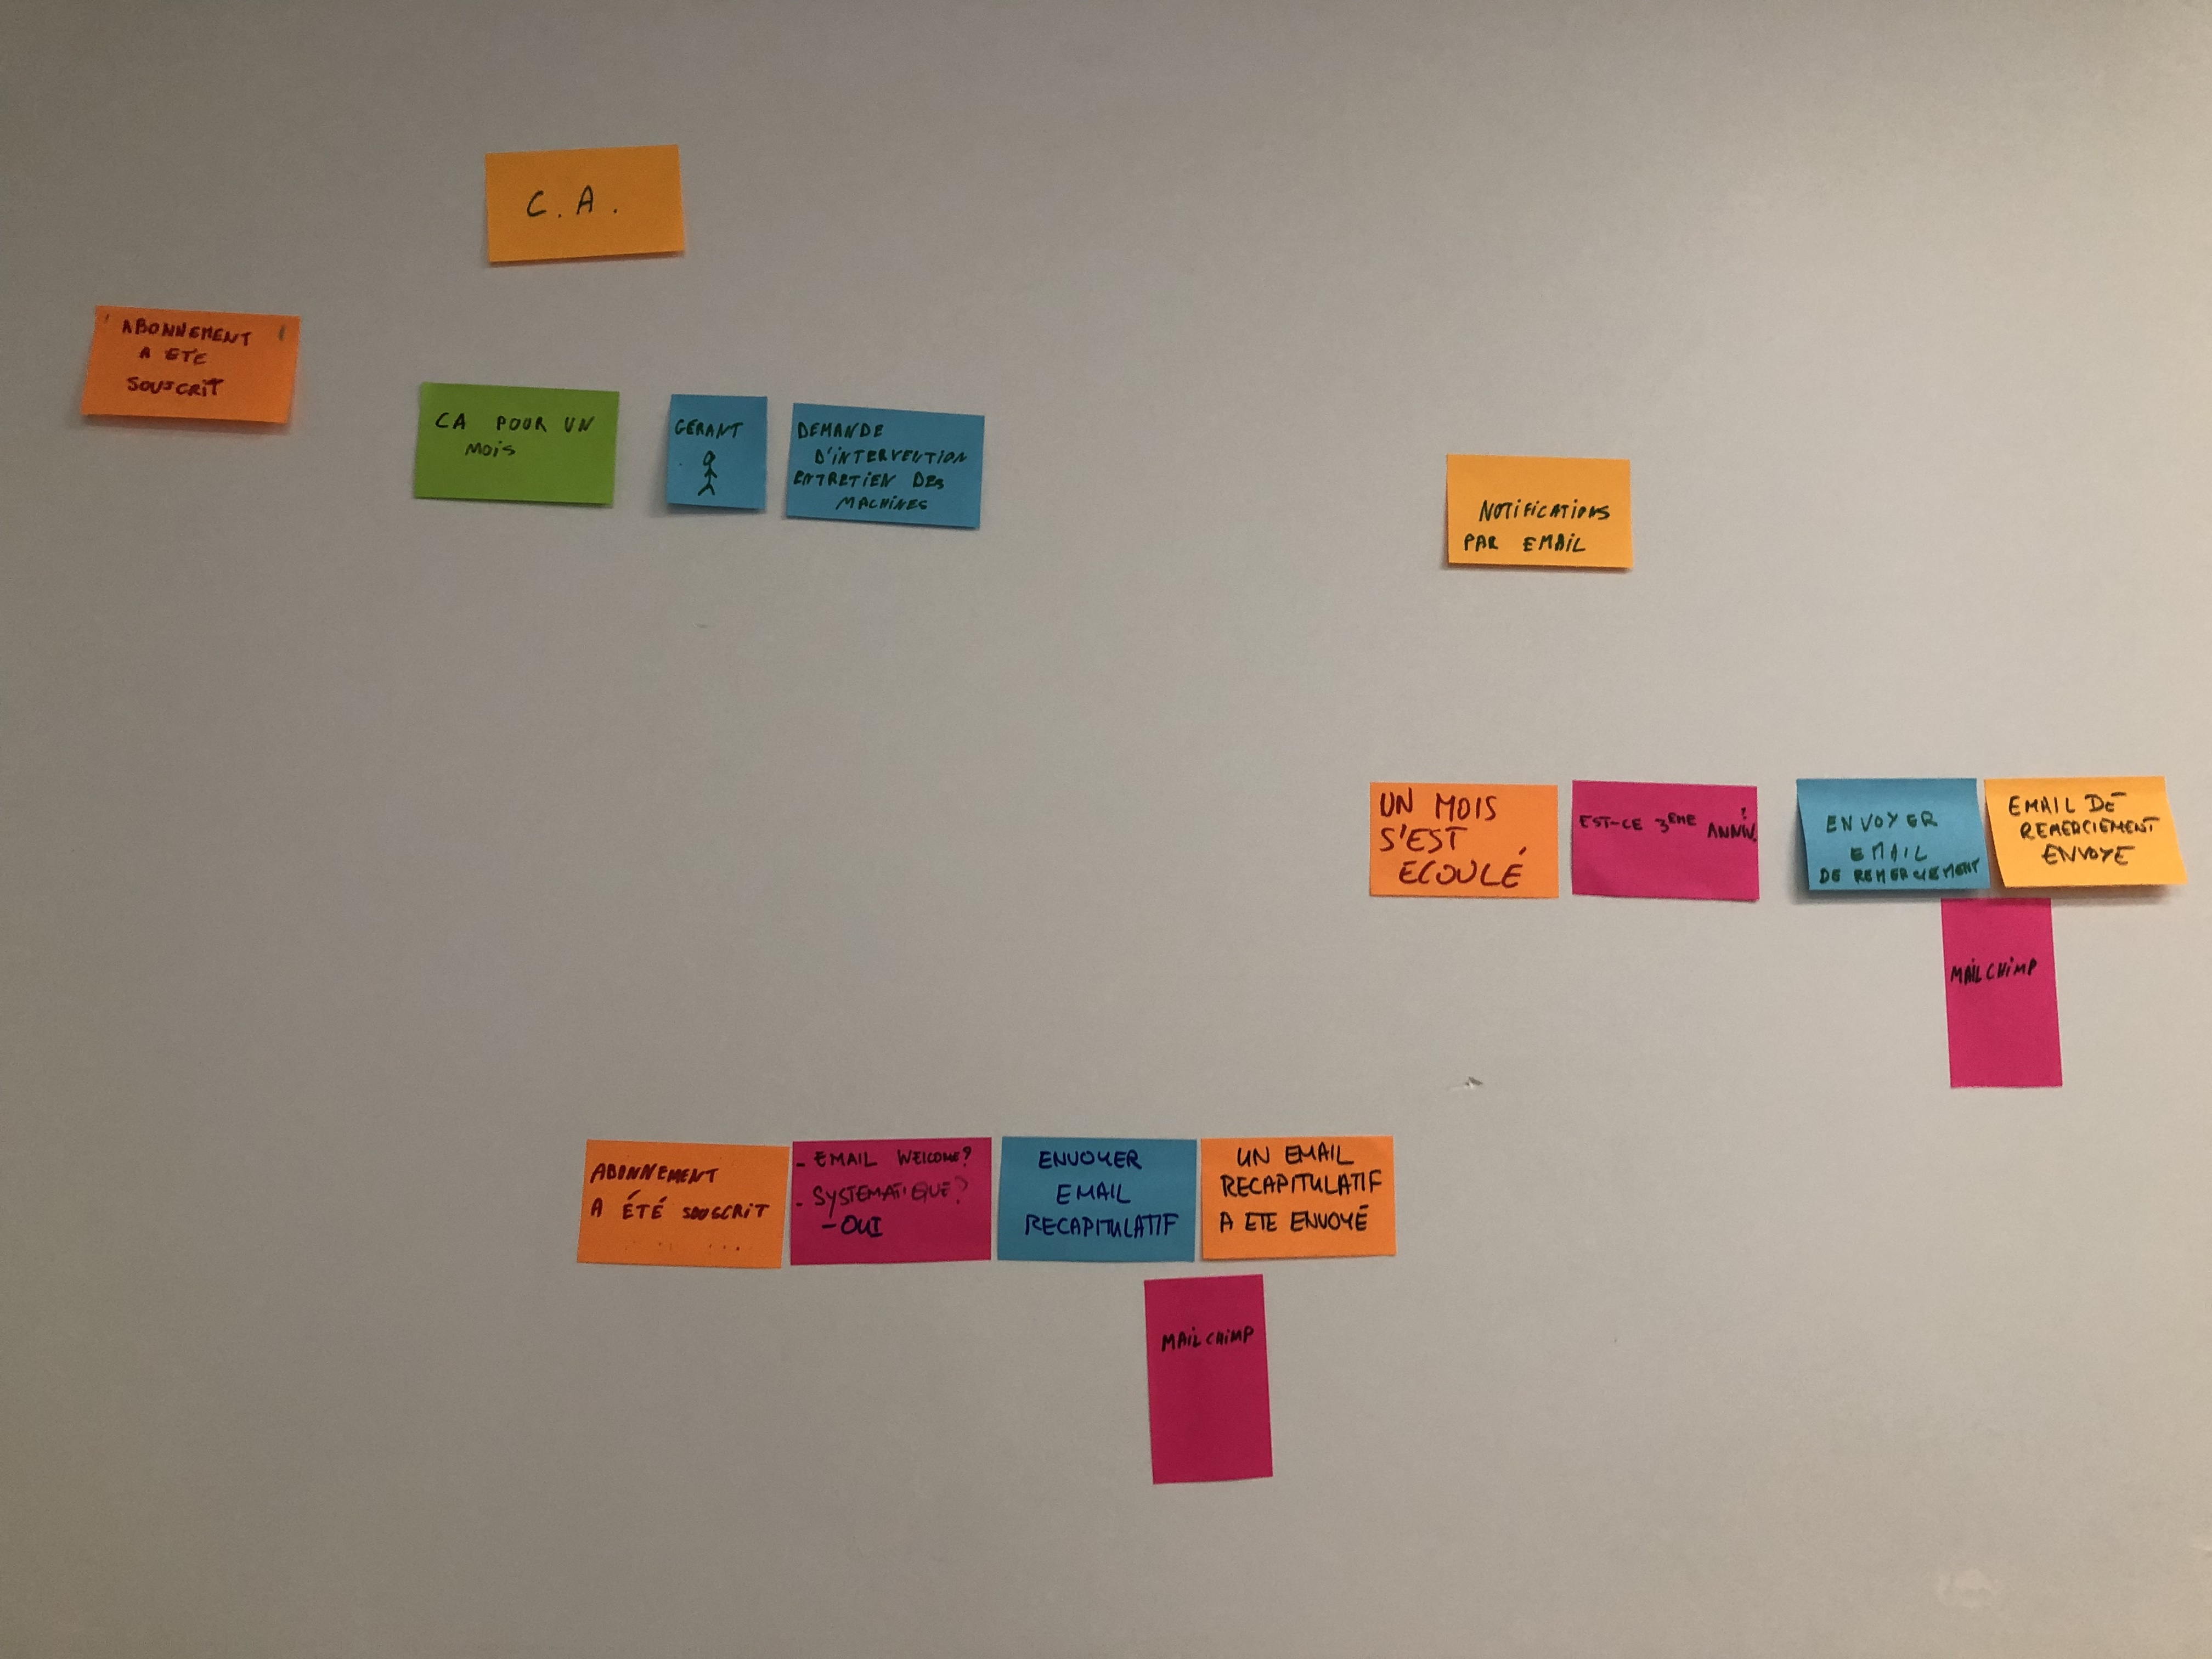 C.A.
ABONNEMENT
A ETE
SOUSCRIT
CA POUR UN
MOIS
GERANT
DEMANDE
D'INTERVENTION
ENTRETIEN DES
MACHINES
NOTIFICATIONS
PAR EMAIL
UN MOIS
S'EST
ECOULÉ
EST-CE 3EME ANNIV.?
ENVOYER
EMAIL
DE REMERCIEMENT
EMAIL DE
REMERCIEMENT
ENVOYE
MAILCHIMP
ABONNEMENT
A ÉTÉ SOUSCRIT
- EMAIL WELCOME?
- SYSTEMATIQUE?
- OUI
ENVOYER
EMAIL
RECAPITULATIF
UN EMAIL
RECAPITULATIF
A ETE ENVOYÉ
MAILCHIMP